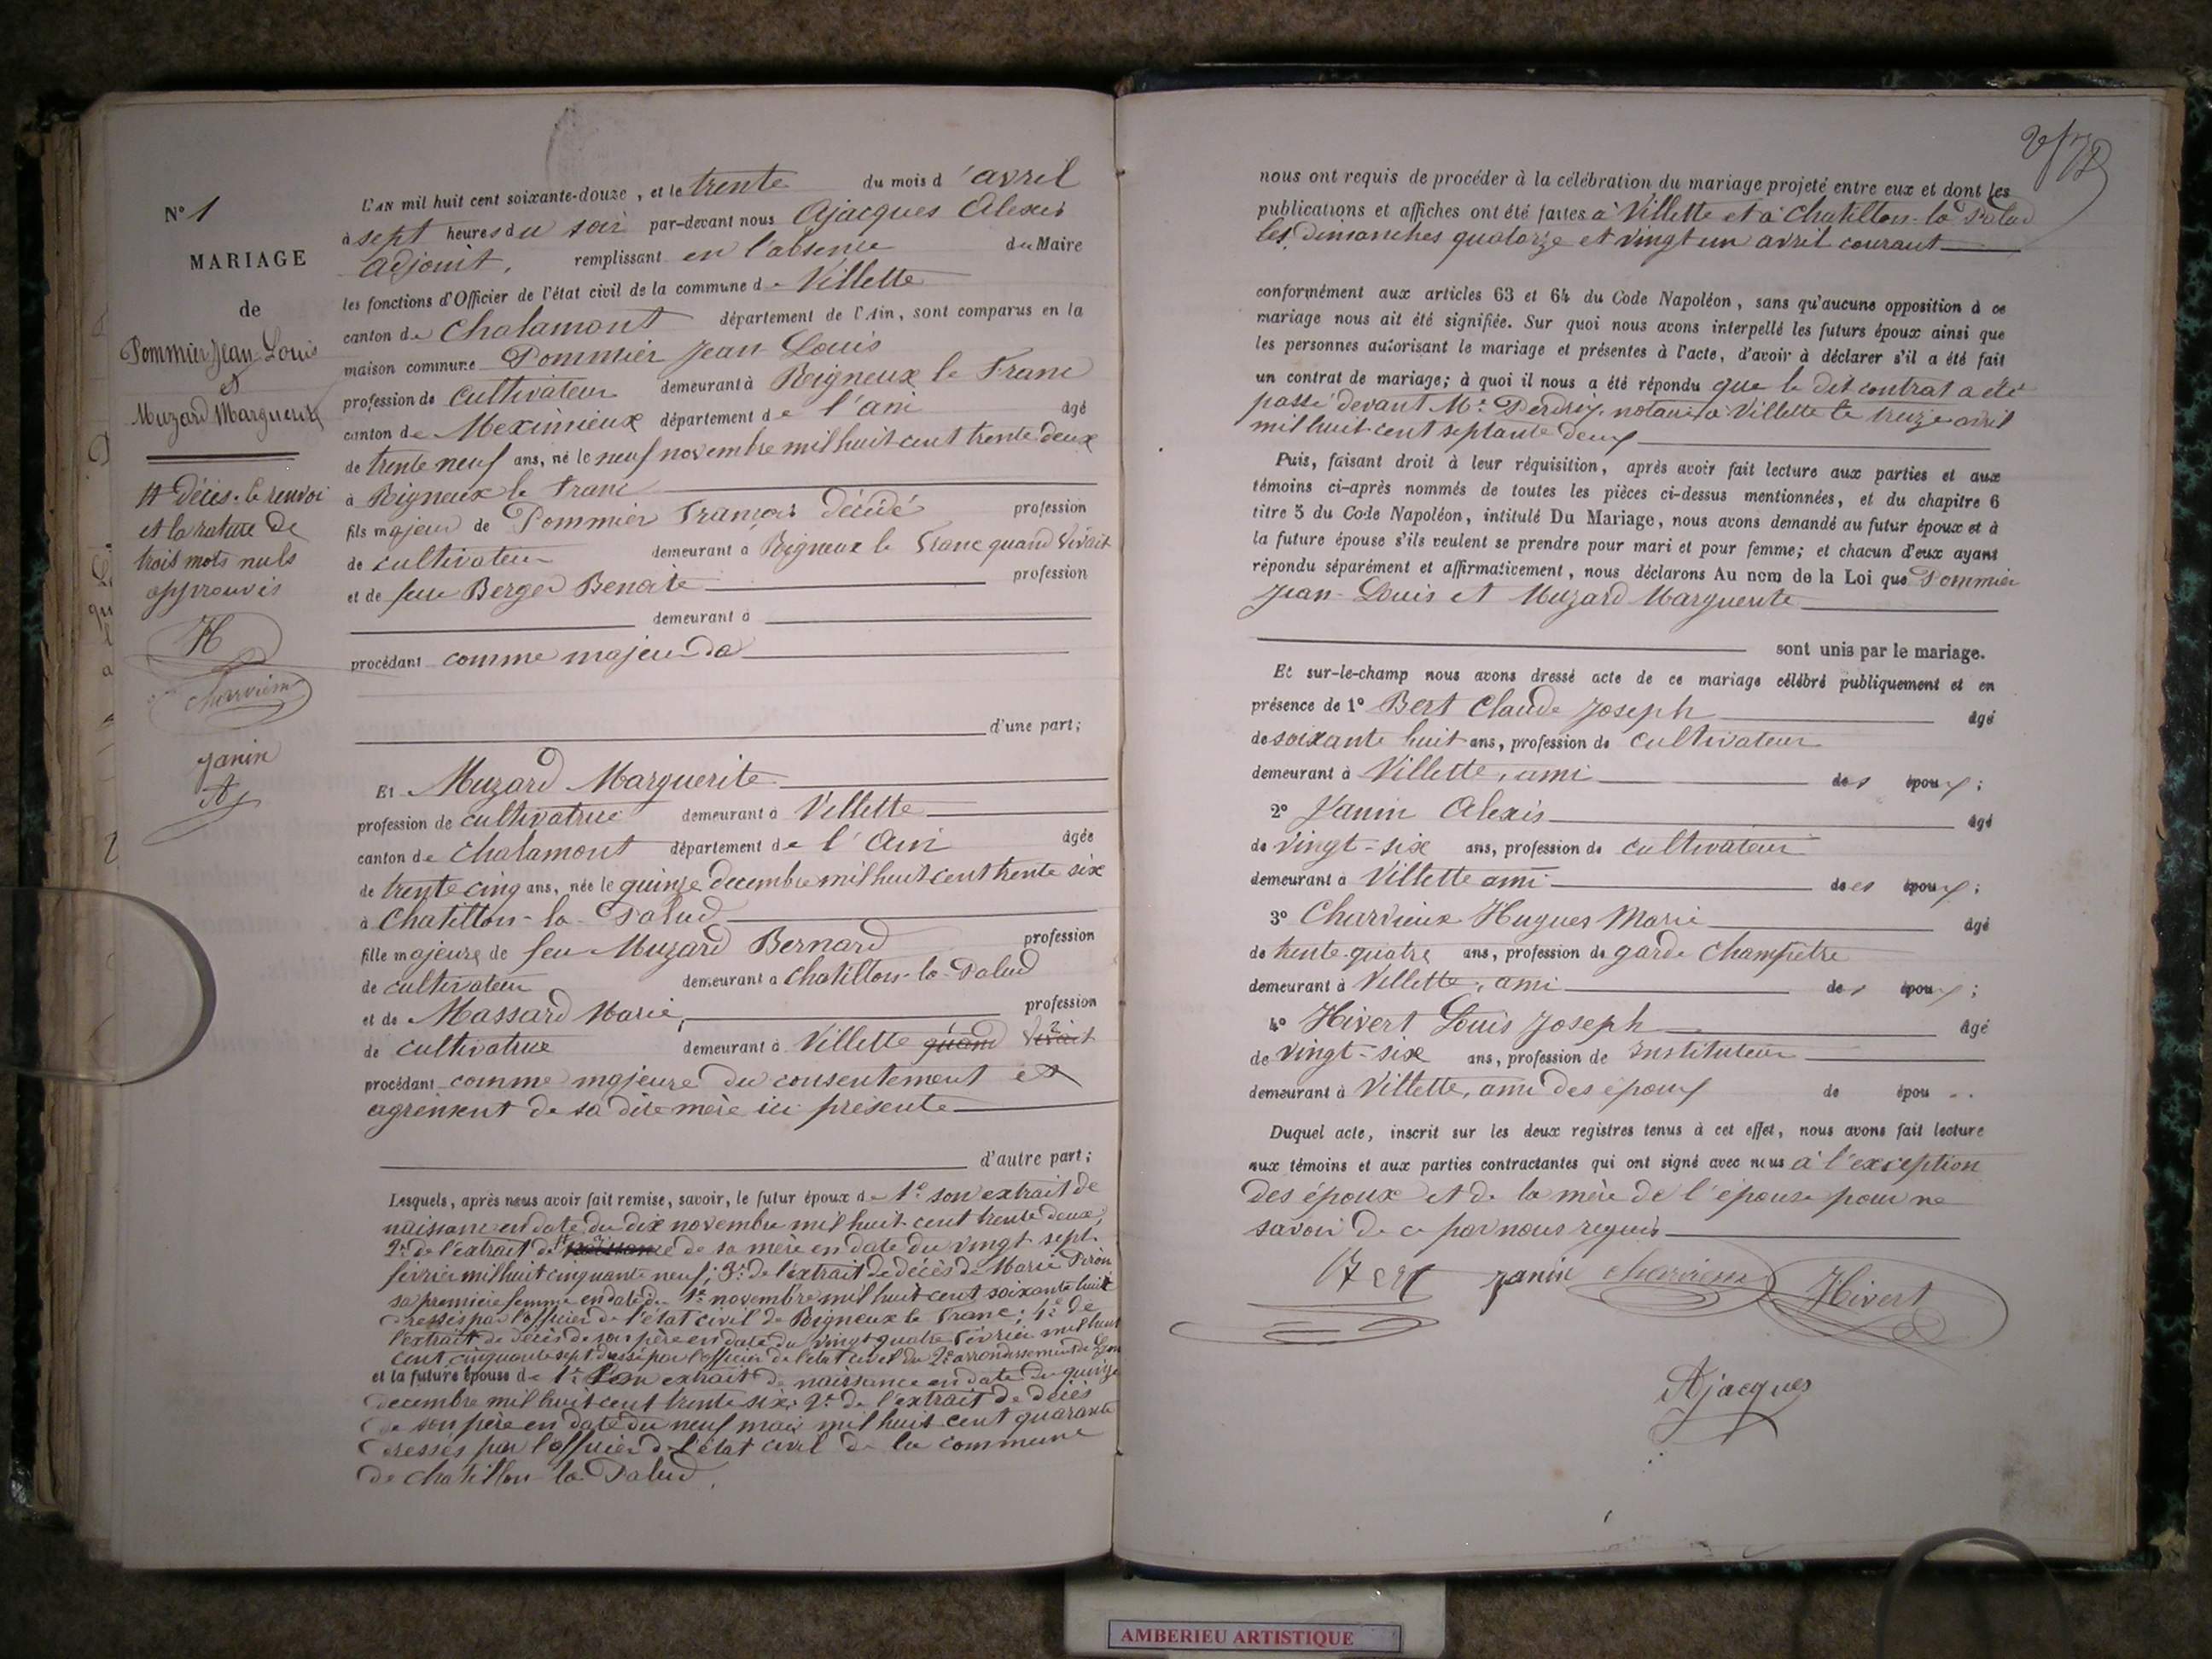 N° 1
MARIAGE
de
Pommier Jean-Louis
et
Muzard Marguerite
# décès. le renvoi
et la rature de
trois mots nuls
approuvés
H
Charvieux
Janin
Aj
L'AN mil huit cent soixante-douze, et le trente du mois d'avril
à sept heures du soir par-devant nous Ajacques Alexis
Adjoint, remplissant en l'absence du Maire
les fonctions d'Officier de l'état civil de la commune de Villette
canton de Chalamont département de l'Ain, sont comparus en la
maison commune Pommier Jean-Louis
profession de cultivateur demeurant à Rigneux le Franc
canton de Meximieux département de l'ain âgé
de trente neuf ans, né le neuf novembre mil huit cent trente deux
à Rigneux le Franc
fils majeur de Pommier François décédé profession
de cultivateur demeurant à Rigneux le Franc quand vivait
et de feue Berger Benoite profession
demeurant à
procédant comme majeur de
d'une part;
Et Muzard Marguerite
profession de cultivatrice demeurant à Villette
canton de Chalamont département de l'Ain âgée
de trente cinq ans, née le quinze decembre mil huit cent trente six
à Chatillon-la-Palud
fille majeure de feu Muzard Bernard profession
de cultivateur demeurant à Chatillon-la-Palud
et de Massard Marie, profession
de cultivatrice demeurant à Villette quand vivait
procédant comme majeure du consentement et
agrément de sa dite mère ici présente
d'autre part;
Lesquels, après nous avoir fait remise, savoir, le futur époux de 1° son extrait de
naissance en date du dix novembre mil huit cent trente deux;
2° de l'extrait de # naissance de sa mère en date du vingt sept
février mil huit cinquante neuf; 3° de l'extrait de décès de Marie Piron
sa première femme en date du 1er novembre mil huit cent soixante huit
dressés par l'officier de l'état civil de Rigneux le Franc; 4° de
l'extrait de décès de son père en date du vingt quatre février mil huit
cent cinquante sept dressé par l'officier de l'état civil du 2e arrondissement de Lyon
et la future épouse de 1° son extrait de naissance en date du quinze
decembre mil huit cent trente six; 2° de l'extrait de décès
de son père en date du neuf mars mil huit cent quarante
dressés par l'officier de l'état civil de la commune
de Chatillon la Palud.
nous ont requis de procéder à la célébration du mariage projeté entre eux et dont les
publications et affiches ont été faites à Villette et à Chatillon-la-Palud
les dimanches quatorze et vingt un avril courant
conformément aux articles 63 et 64 du Code Napoléon, sans qu'aucune opposition à ce
mariage nous ait été signifiée. Sur quoi nous avons interpellé les futurs époux ainsi que
les personnes autorisant le mariage et présentes à l'acte, d'avoir à déclarer s'il a été fait
un contrat de mariage; à quoi il nous a été répondu que le dit contrat a été
passé devant Me Perdrix notaire à Villette le treize avril
mil huit cent septante deux
Puis, faisant droit à leur réquisition, après avoir fait lecture aux parties et aux
témoins ci-après nommés de toutes les pièces ci-dessus mentionnées, et du chapitre 6
titre 5 du Code Napoléon, intitulé Du Mariage, nous avons demandé au futur époux et à
la future épouse s'ils veulent se prendre pour mari et pour femme; et chacun d'eux ayant
répondu séparément et affirmativement, nous déclarons Au nom de la Loi que Pommier
Jean-Louis et Muzard Marguerite
sont unis par le mariage.
Et sur-le-champ nous avons dressé acte de ce mariage célébré publiquement et en
présence de 1° Bert Claude Joseph âgé
de soixante huit ans, profession de cultivateur
demeurant à Villette, ami des époux;
2° Janin Alexis âgé
de vingt-six ans, profession de cultivateur
demeurant à Villette ami des époux;
3° Charvieux Hugues Marie âgé
de trente-quatre ans, profession de garde champêtre
demeurant à Villette, ami des époux;
4° Hivert Louis Joseph âgé
de vingt-six ans, profession de Instituteur
demeurant à Villette, ami des époux de épou
Duquel acte, inscrit sur les deux registres tenus à cet effet, nous avons fait lecture
aux témoins et aux parties contractantes qui ont signé avec nous à l'exception
des époux et de la mère de l'épouse pour ne
savoir de ce par nous requis
Bert Janin Charvieux Hivert
Ajacques
AMBERIEU ARTISTIQUE